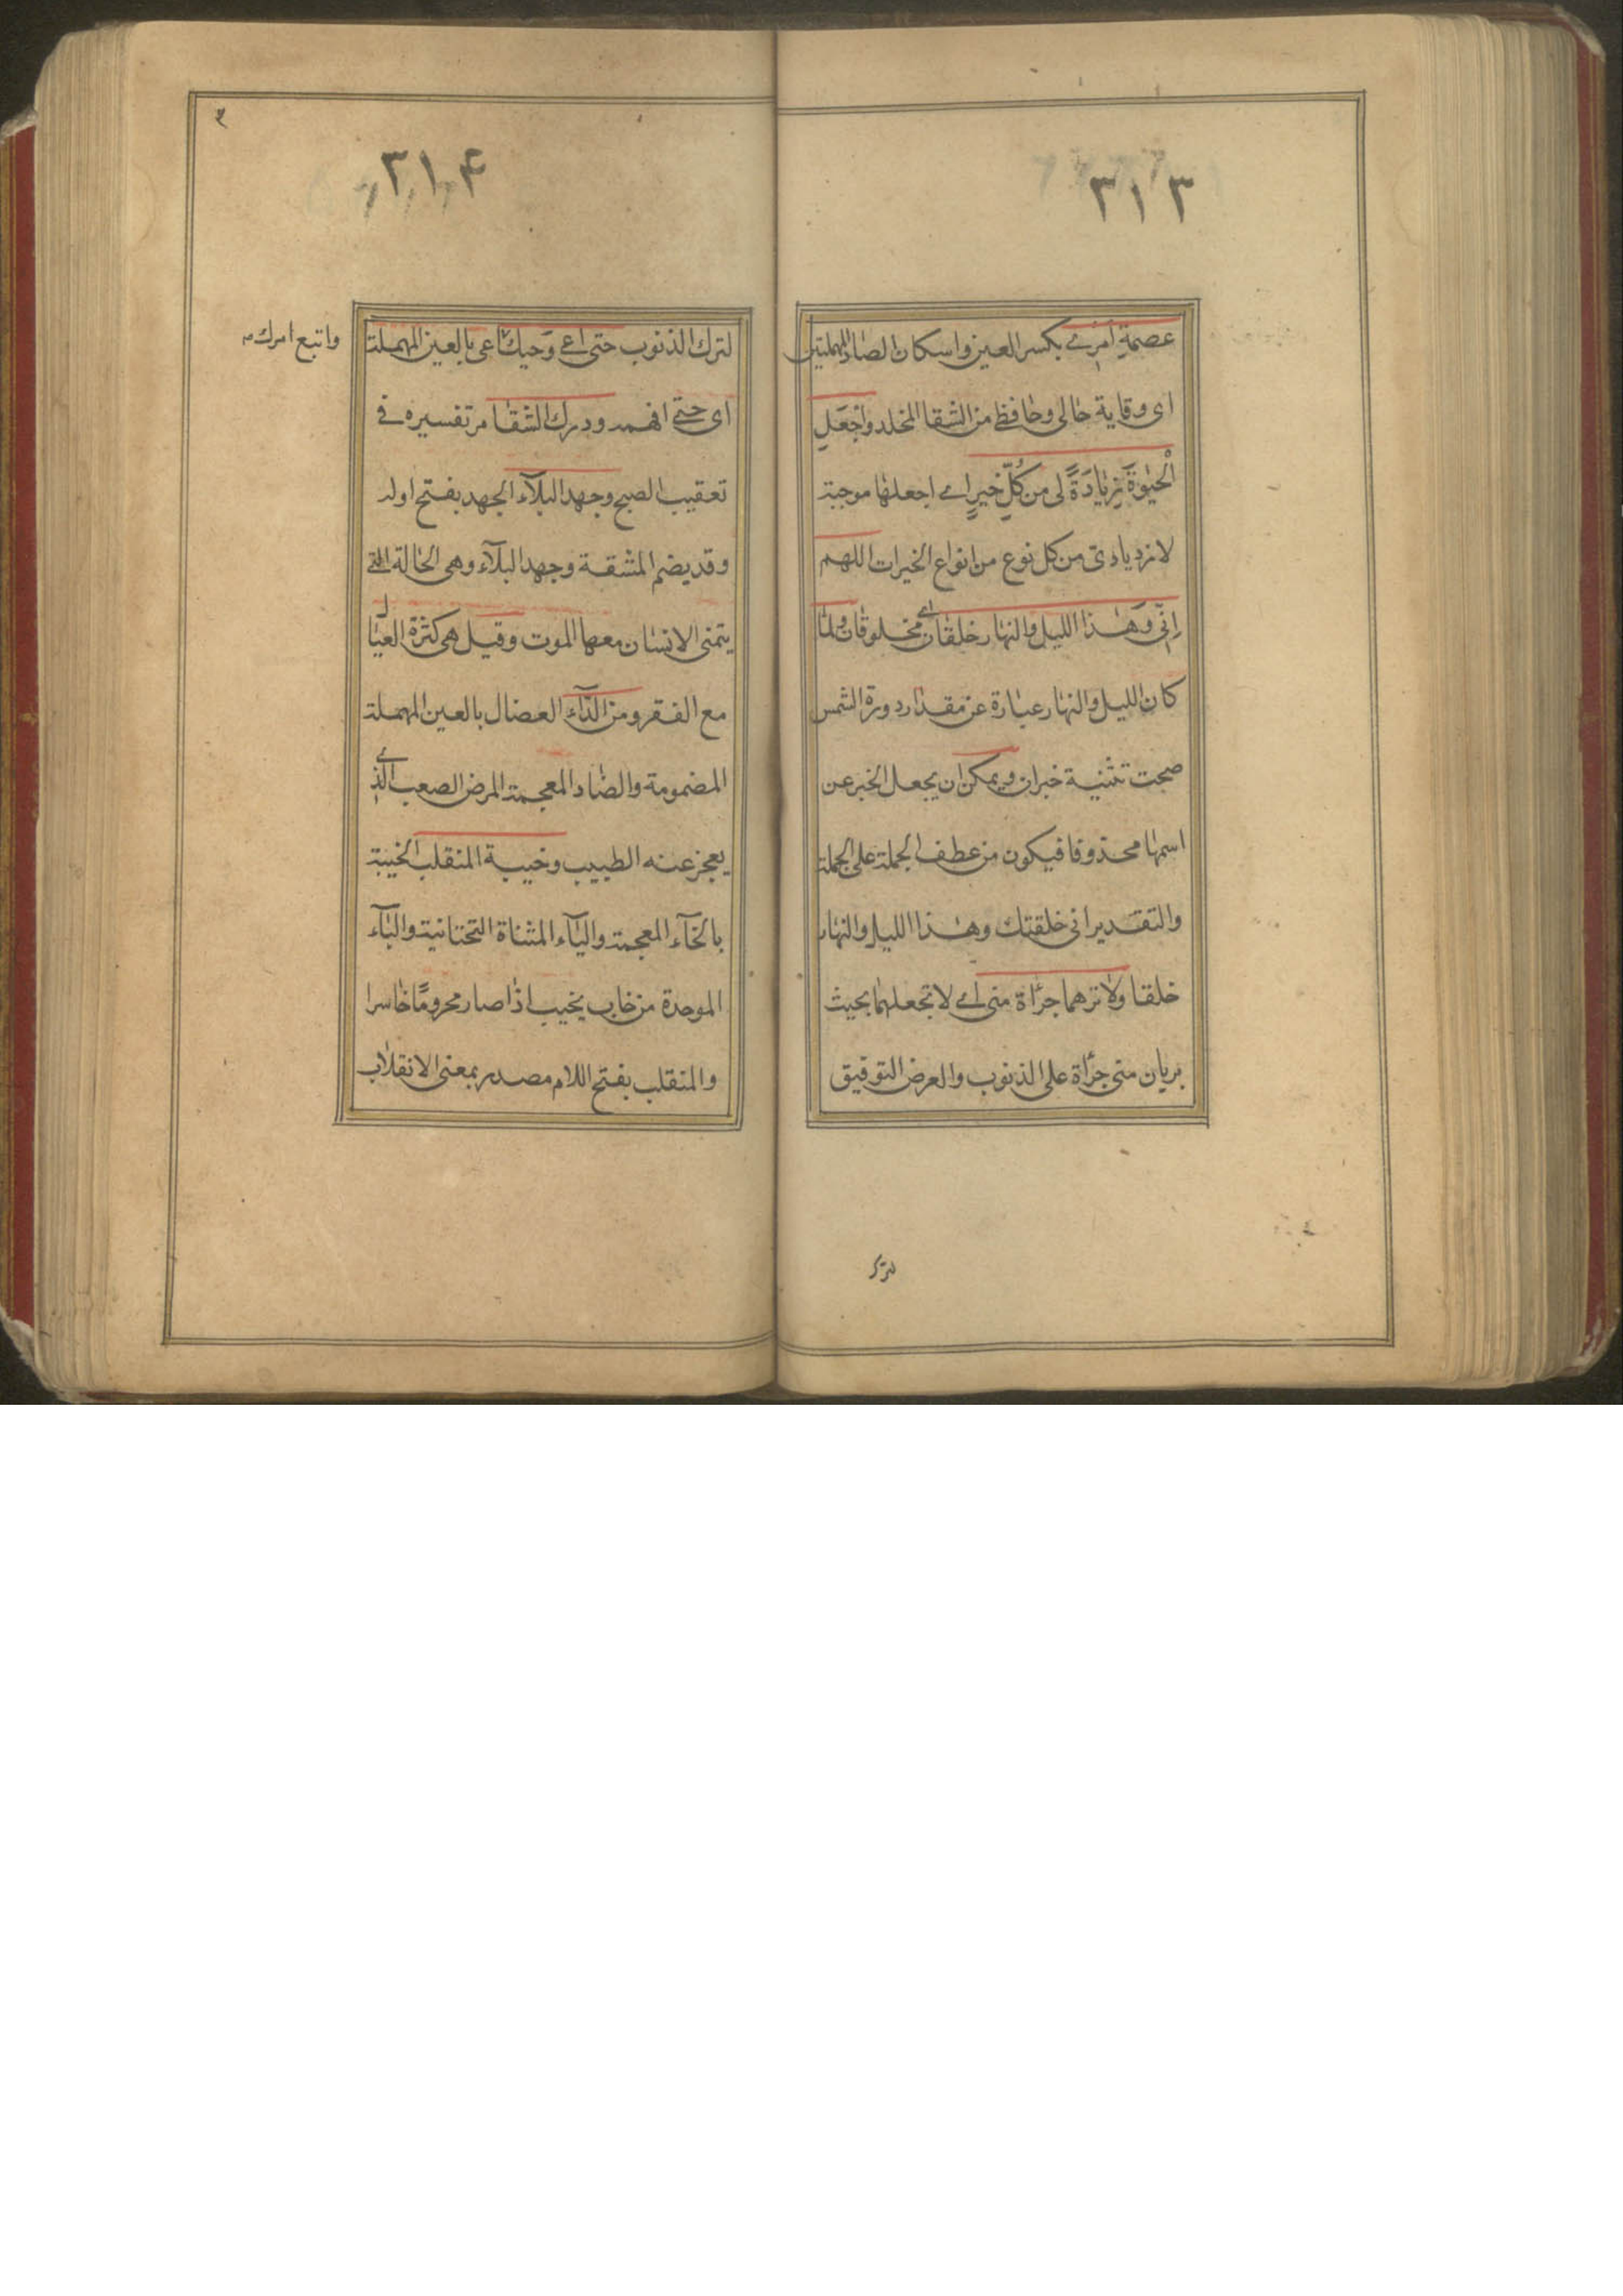 ٣١٣
عصمة امرے بكسر العين واسكان الصاد المهملتين
ای وقاية حالی وحافظے من الشقا المخلد واجْعَلِ
الْحَيٰوةَ زِيَادَةً لی من كُلِّ خيرٍ اے اجعلها موجبة
لازديادی من كل نوع من انواع الخيرات اللهم
اِنّی وَهٰذا الليل والنهار خلقان اے مخلوقان ولما
كان الليل والنهار عبارة عن مقدار دورة الشمس
صحت تثنية خبران ويمكن ان يجعل الخبر عن
اسمها محذوفا فيكون من عطف الجملة على الجملة
والتقدير انی خلقتك وهذا الليل والنهار
خلقا ولا ترهما جرأة منی اے لا تجعلهما بحيث
يريان منی جرأة على الذنوب والغرض التوفيق
لترك
٣١۴
لترك الذنوب حتى اعے وَحيك اعی بالعين المهملة
واتبع امرك
ای حتے افهمه ودرك الشقا مر تفسيره فے
تعقيب الصبح وجهد البلآء الجهد بفتح اوله
وقد يضم المشقة وجهد البلآء وهی الحالة التے
يتمنى الانسان معها الموت وقيل هی كثرة العيال
مع الفقر ومن الدآء العضال بالعين المهملة
المضمومة والضاد المعجمة المرض الصعب الذے
يعجز عنه الطبيب وخيبة المنقلب الخيبة
بالخآء المعجمة واليآء المثناة التحتانية والبآء
الموحدة من خاب يخيب اذا صار محرومًا خاسرا
والمنقلب بفتح اللام مصدر بمعنى الانقلاب